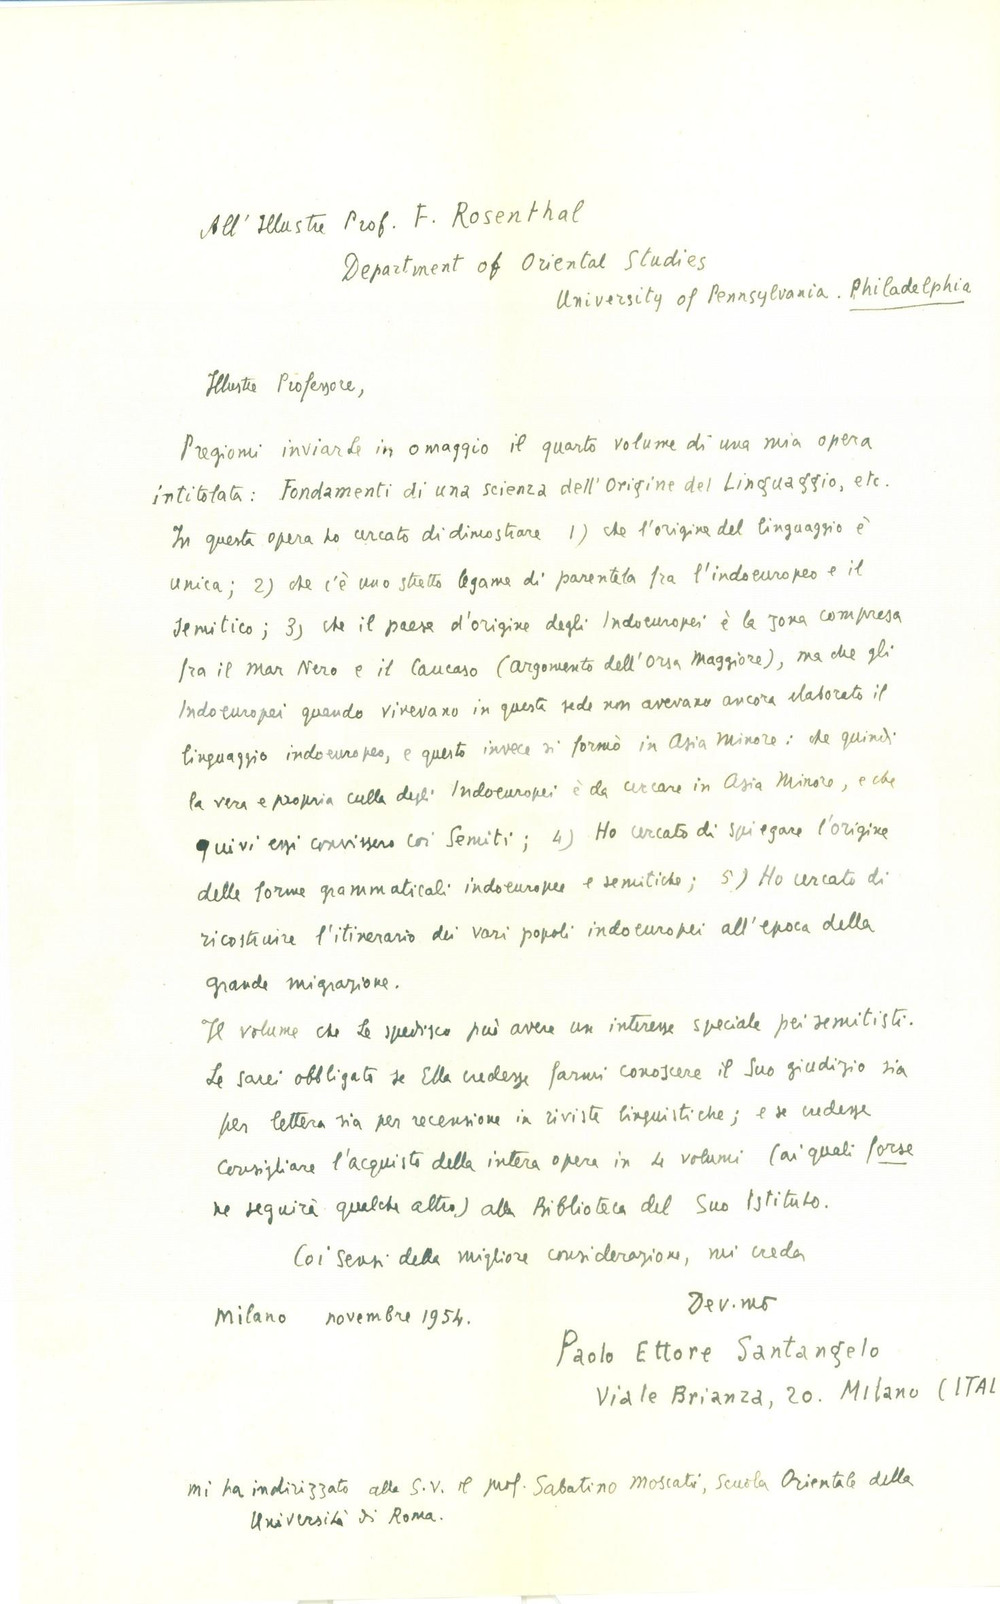 All' Illustre Prof. F. Rosenthal
Department of Oriental Studies
University of Pennsylvania. Philadelphia
Illustre Professore,
Pregiomi inviarLe in omaggio il quarto volume di una mia opera
intitolata: Fondamenti di una scienza dell'Origine del Linguaggio, etc.
In questa opera ho cercato di dimostrare 1) che l'origine del linguaggio è
unica; 2) che c'è uno stretto legame di parentela fra l'indoeuropeo e il
semitico; 3) che il paese d'origine degli Indoeuropei è la zona compresa
fra il Mar Nero e il Caucaso (argomento dell'Orsa Maggiore), ma che gli
Indoeuropei quando vivevano in questa sede non avevano ancora elaborato il
linguaggio indoeuropeo, e questo invece si formò in Asia Minore: che quindi
la vera e propria culla degli Indoeuropei è da cercare in Asia Minore, e che
quivi essi convissero coi Semiti; 4) Ho cercato di spiegare l'origine
delle forme grammaticali indoeuropee e semitiche; 5) Ho cercato di
ricostruire l'itinerario dei vari popoli indoeuropei all'epoca della
grande migrazione.
Il volume che Le spedisco può avere un interesse speciale pei semitisti.
Le sarei obbligato se Ella credesse farmi conoscere il Suo giudizio sia
per lettera sia per recensione in riviste linguistiche; e se credesse
consigliare l'acquisto della intera opera in 4 volumi (ai quali forse
ne seguirà qualche altro) alla Biblioteca del Suo Istituto.
Coi sensi della migliore considerazione, mi creda
Dev.mo
Milano novembre 1954.
Paolo Ettore Santangelo
Viale Brianza, 20. Milano (ITAL
Mi ha indirizzato alla S.V. il prof. Sabatino Moscati, Scuola Orientale della
Università di Roma.